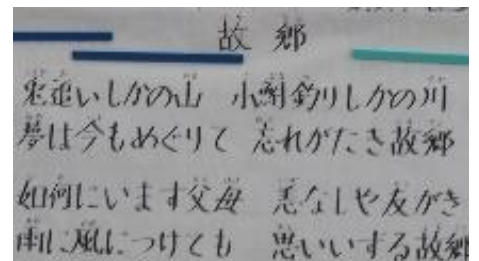 故郷
兎追いしかの山 小鮒釣りしかの川
夢は今もめぐりて 忘れがたき故郷
如何にいます父母 恙なしや友がき
雨に風につけても 思いいずる故郷